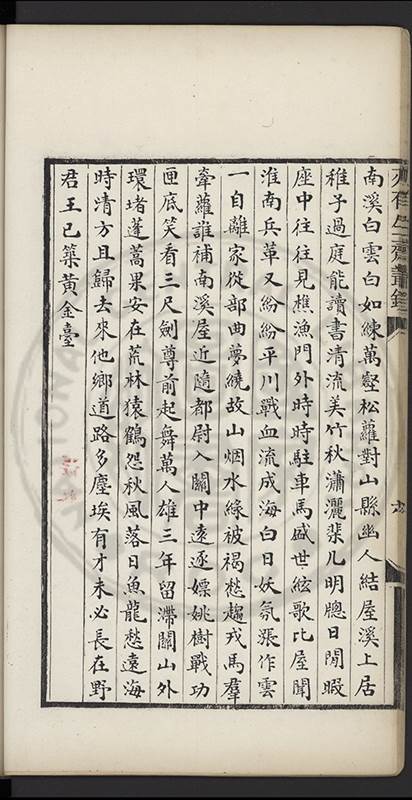 南溪白雲白如練萬壑松蘿對山縣幽人結屋溪上居
稚子過庭能讀書清流美竹秋瀟灑棐几明牕日閒暇
座中往往見樵漁門外時時駐車馬盛世絃歌比屋聞
淮南兵革又紛紛平川戰血流成海白日妖氛漲作雲
一自離家從部曲夢繞故山烟水綠被褐愁趨戎馬羣
牽蘿誰補南溪屋近隨都尉入關中遠逐嫖姚樹戰功
匣底笑看三尺劍尊前起舞萬人雄三年留滯關山外
環堵蓬蒿果安在荒林猿鶴怨秋風落日魚龍愁遠海
時清方且歸去來他鄉道路多塵埃有才未必長在野
君王已築黃金臺